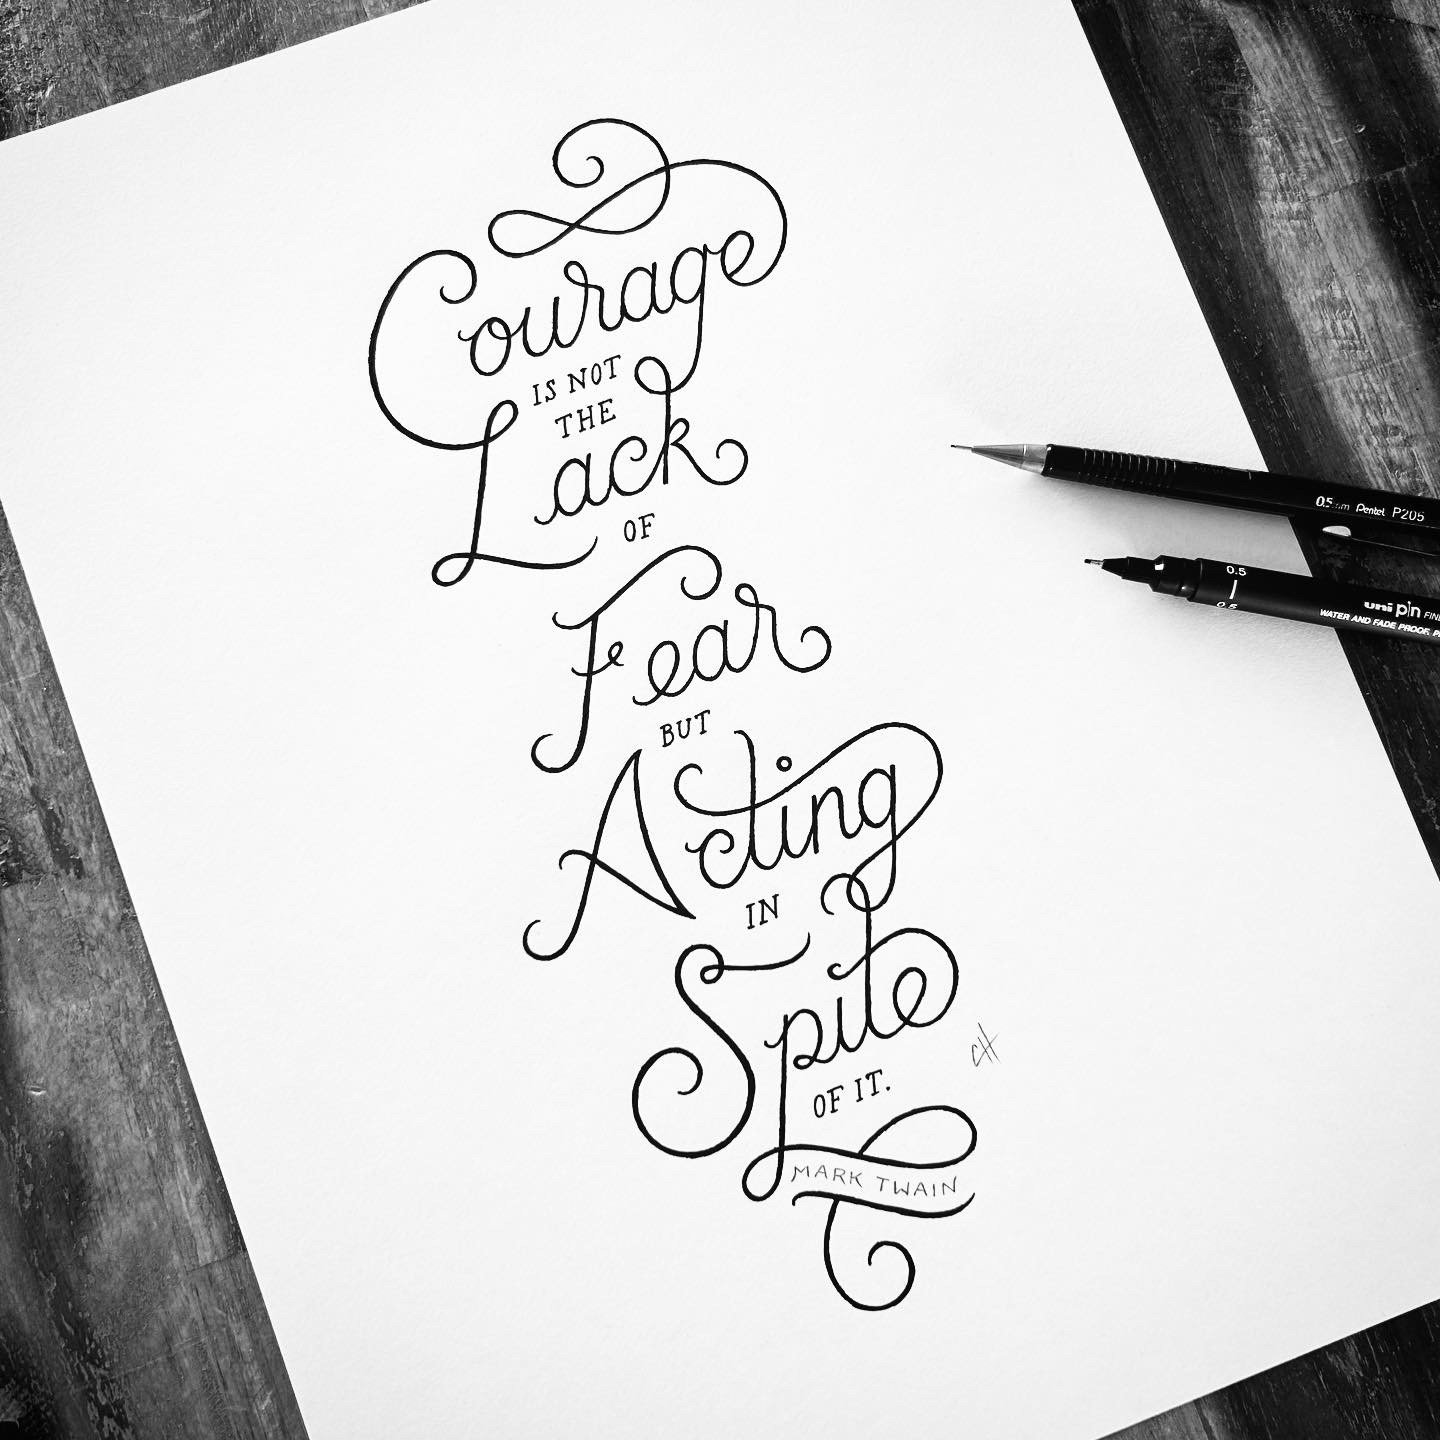 Courage
IS NOT
THE
Lack
OF
Fear
BUT
Acting
IN
Spite
OF IT.
MARK TWAIN
CH
0.5mm Pentel P205
0.5
0.5
uni pin FINE
WATER AND FADE PROOF, P